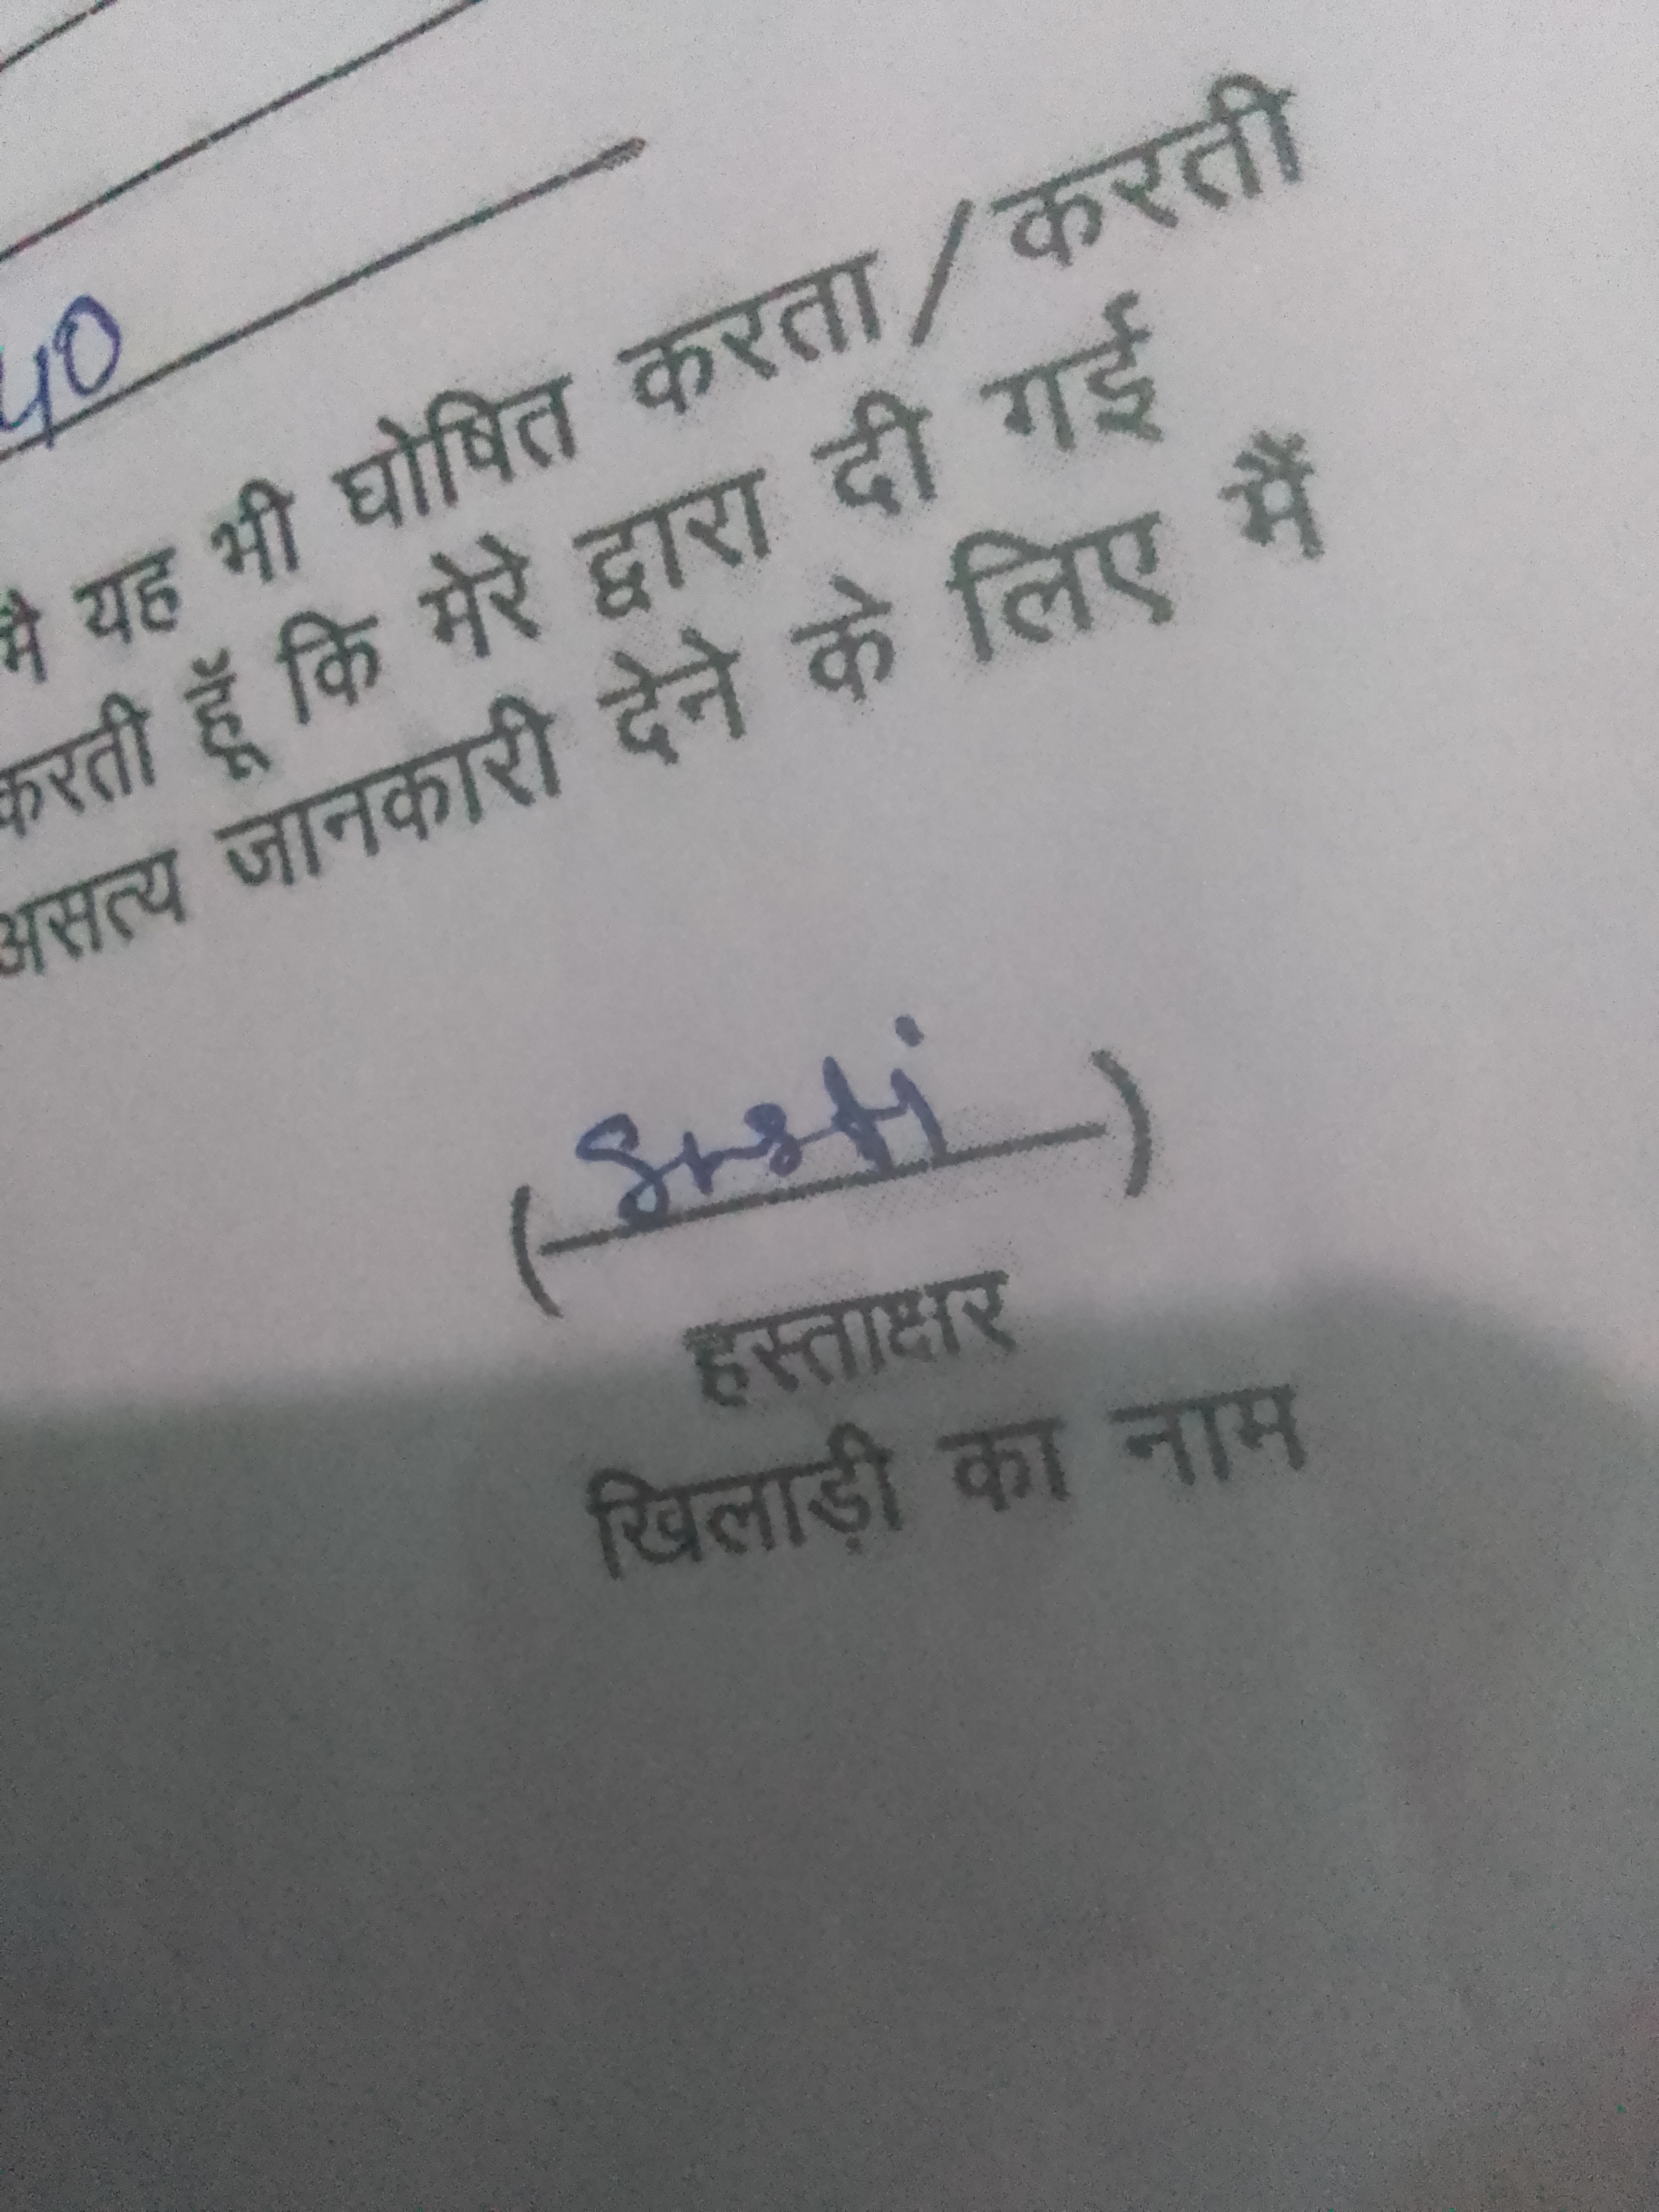 40
मै यह भी घोषित करता/करती
करती हूँ कि मेरे द्वारा दी गई
असत्य जानकारी देने के लिए मैं
(Srsti)
हस्ताक्षर
खिलाड़ी का नाम